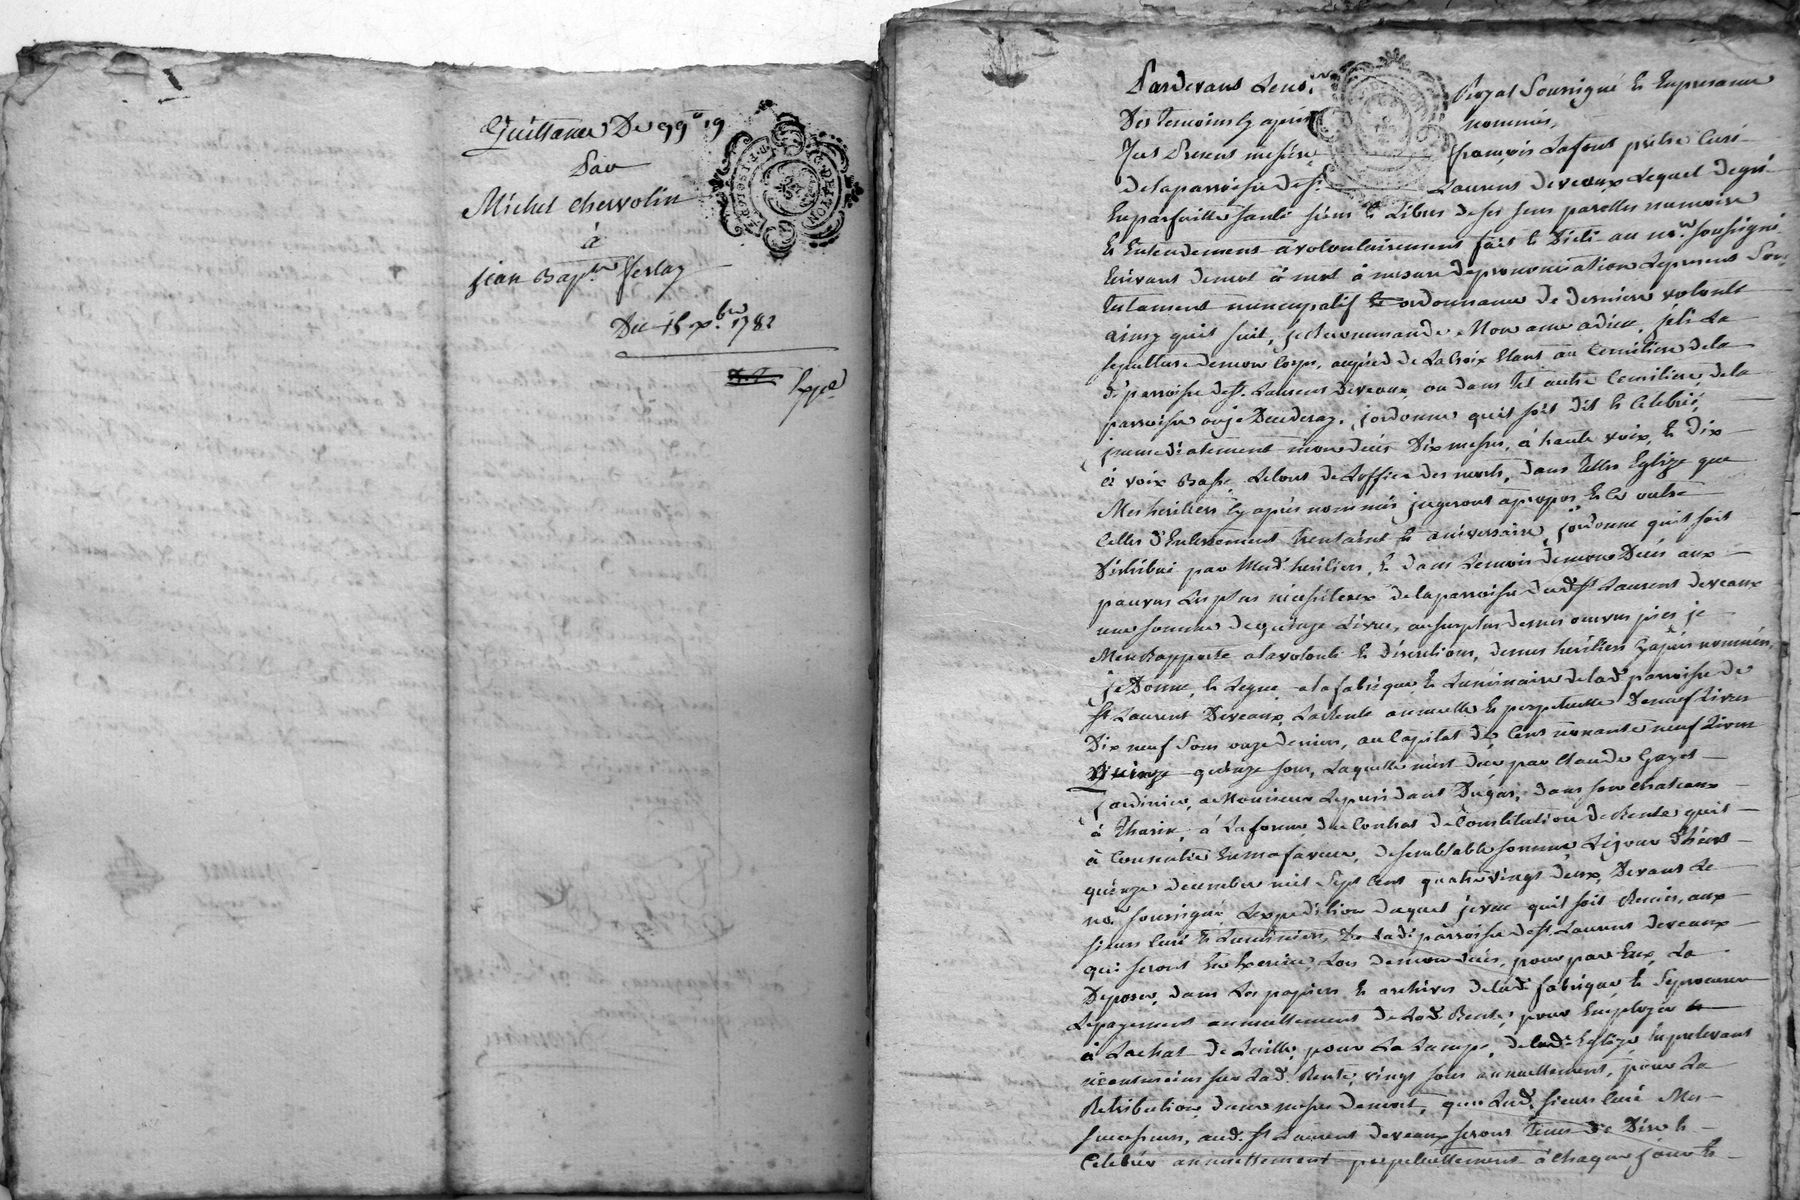 Quittance De 99# 19
Par
Michel Chervolin
à
jean Bapte ferlay
Du 15 xbre 1782
Expé
G. DE LYON
Pardevant Le no.re Royal Soussigné et En presence
Des temoins Cy après nommés,
fut Present messire françois Lafont prêtre Curé
de la parroisse de St. Laurens deveaux Lequel de gré
En parfaitte santé sieur et Libre de ses sens parolles memoire
Et Entendement a volontairement fait et Dicté au no.re soussigné
Ecrivant de mot à mot à mesure de prononciation Le present Son
testament nuncupatif et ordonnance de derniere volonté
ainsy quil suit, je Recommande Mon ame a dieu, jelis La
sepulture de mon Corps, au pied de La Croix Etant au Cemitiere de la
de parroisse de St. Laurens Deveaux, ou dans tel autre Cemitiere de la
parroisse ou je Decederay, jordonne quil soit dit et Celebré,
immediatement mon decés Dix messes, à haute voix, et dix
à voix Basse Le tout de Loffice des morts, dans telle Eglize que
Mes heritiers Cy après nommés jugeront apropos Et Ce outre
Celles d'Enterrement trentaine et aniversaire, jordonne quil soit
Distribué par Mesd. heritiers, et dans Le mois de mon Decés aux
pauvres Les plus necessiteux de la parroisse dud. St Laurens deveaux
une somme de quinze Livres, au surplus de mes œuvres pies je
Men Rapporte a la volonté et discretion, de mes heritiers Cy après nommés,
je Donne, et Legue a la fabrique et Luminaire de lad. parroisse de
St Laurent Deveaux, La Rente annuelle et perpetuelle De neuf Livres
Dix neuf Sous onze deniers, au Capital de Cent nonante neuf Livres
quinze sous, Laquelle mest due par Claude Gayet
jardinier, de Monsieur Le president Dugas, dans son chateaux
à Thurin, à La forme du Contrat de Constitution de Rente quil
à Consentie En ma faveur, de semblable somme Le jour Dhier
quinze decembre mil Sept Cent quatre vingt deux, Devant Le
no.re soussigné, Lexpedition duquel je veux quil soit Remis, aux
sieurs Curé et Luminiers, De lad. parroisse de St. Laurens deveaux
qui seront En Exercice, Lors de mon decés, pour par Eux, La
Deposer, dans Les papiers et archives de lad. fabrique et Se procurer
Le payement annuellement de Lad. Rente, pour Employer
à Lachat de Luille, pour La Lampe, de lad. Eglize En prelevant
neantmoins sur Lad. Rente, vingt sous annuellement, pour La
Retribution dune messe de mort, que Led. sieur Curé Mes
successeurs, aud. St Laurent deveaux seront tenus de Dire et
Celebrer annuellement perpetuellement à chaque jour et